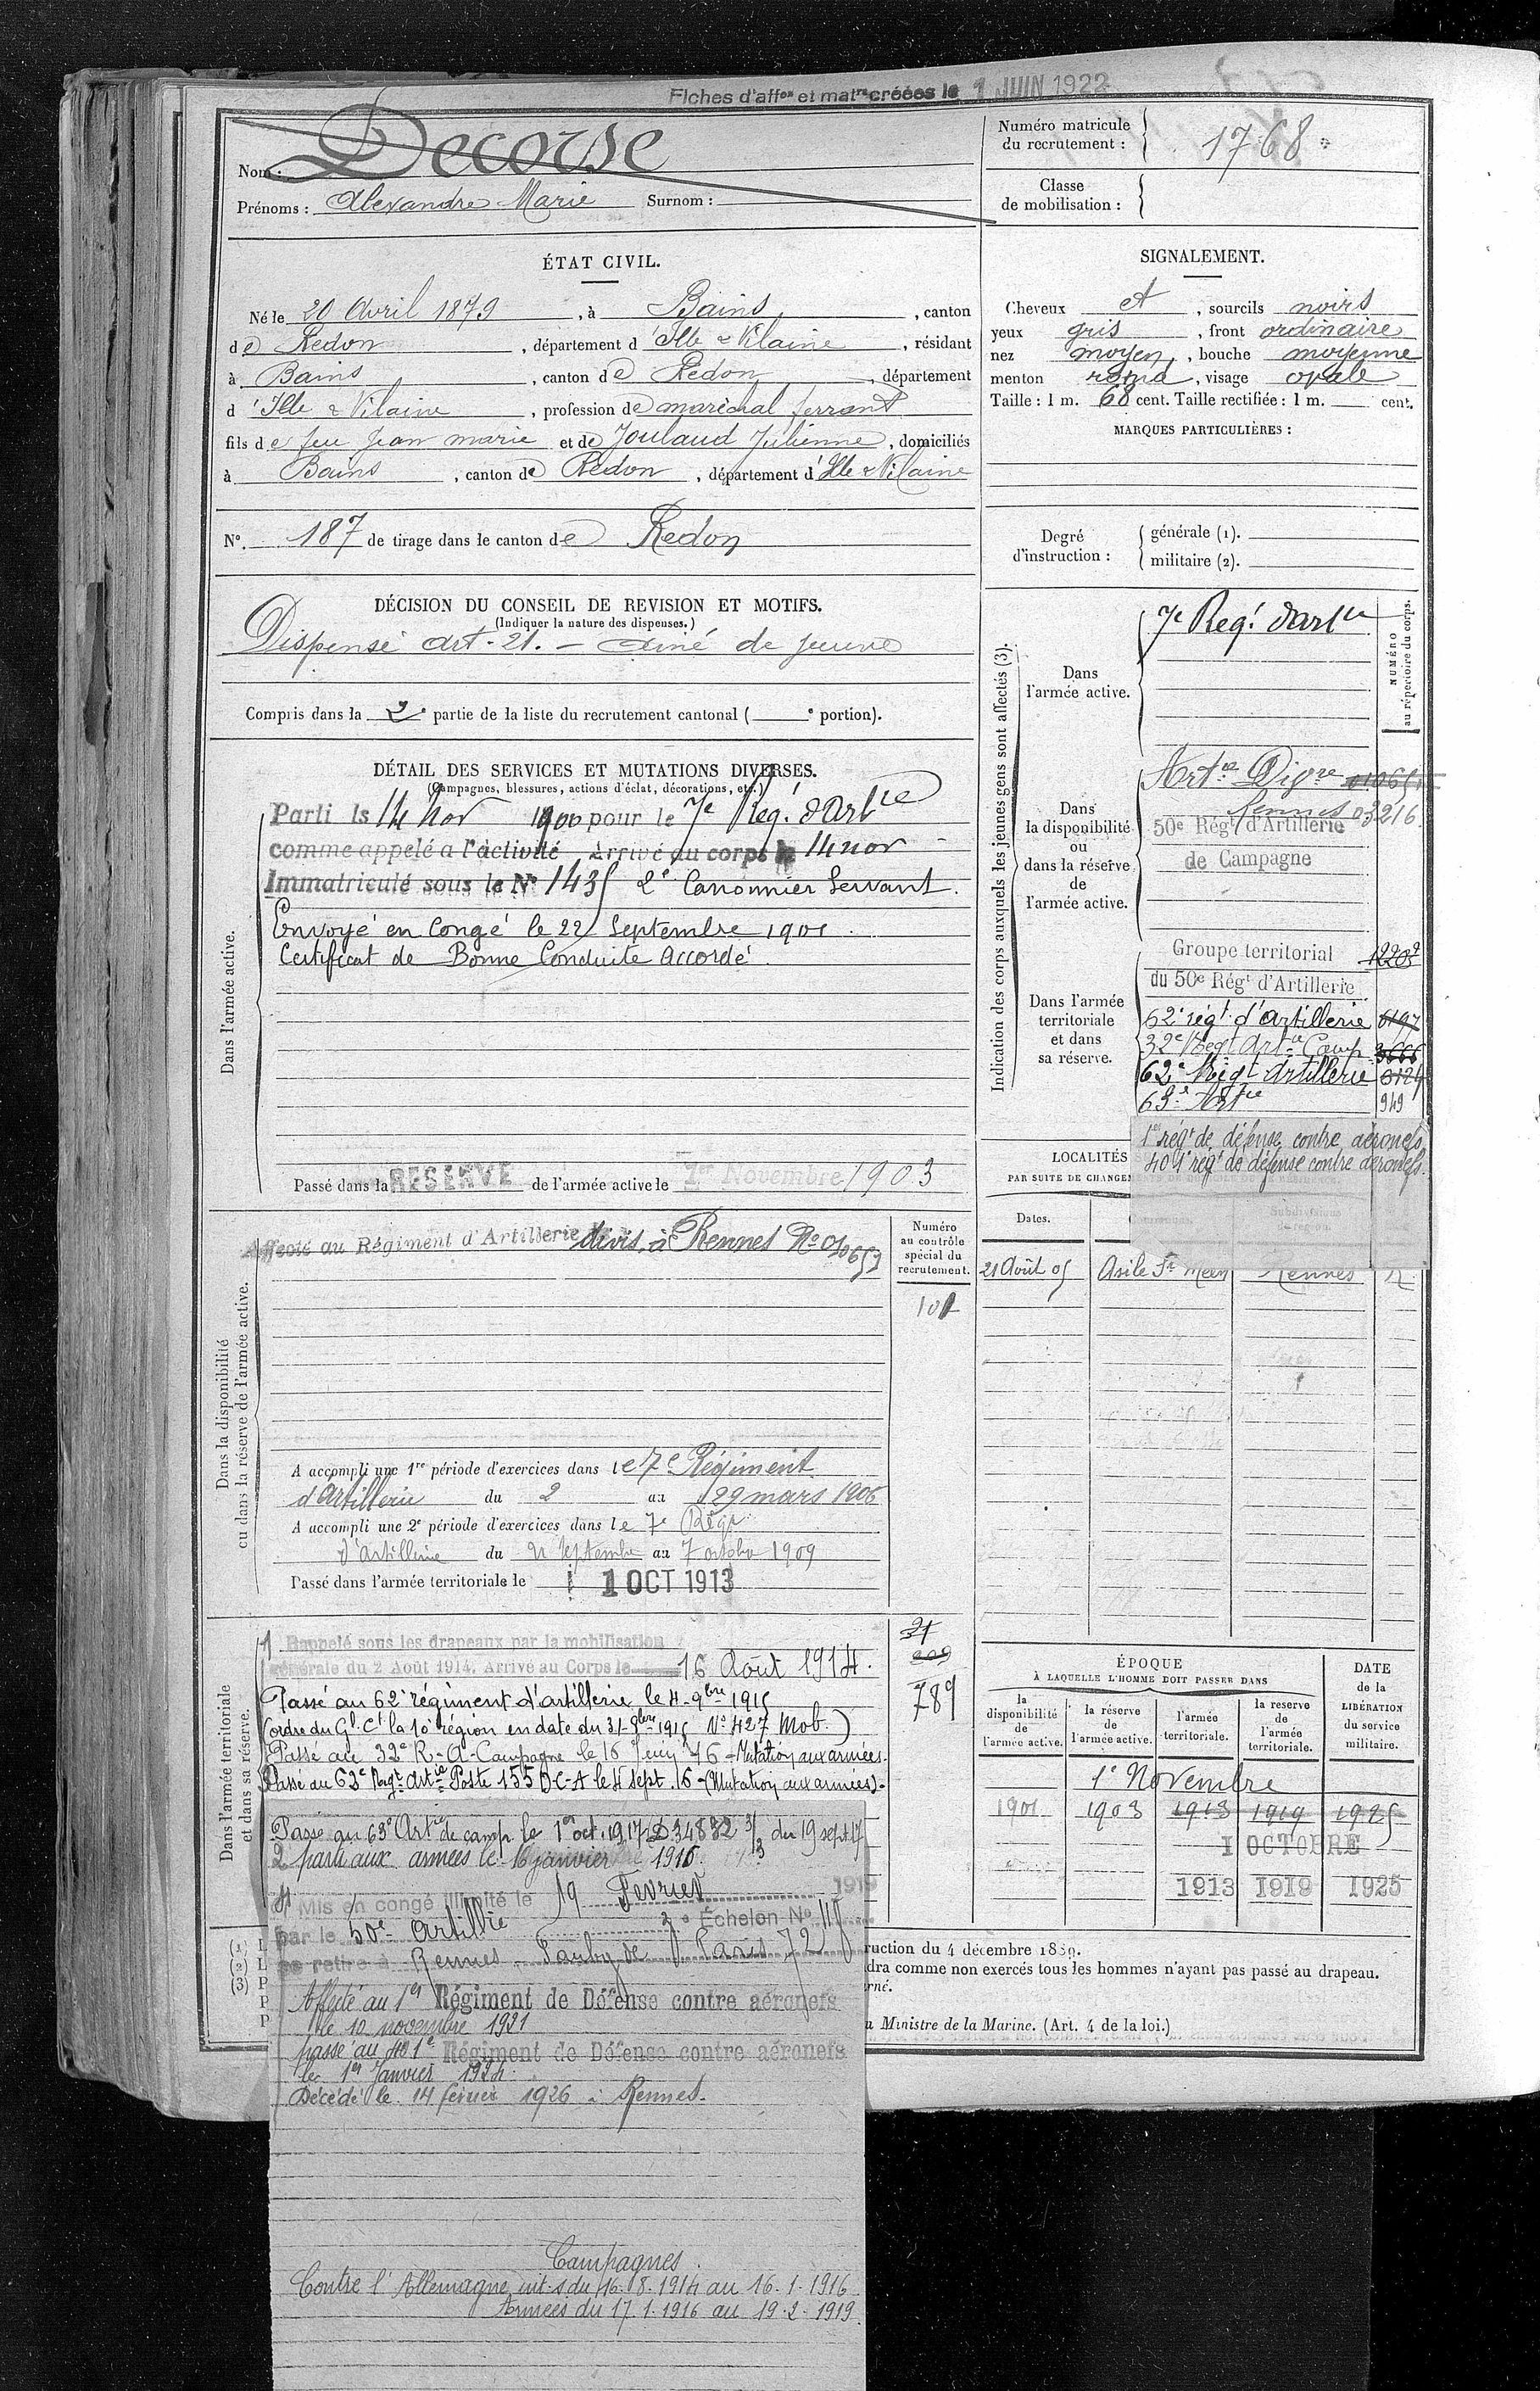 Fiches d'affon et matre créées le 1 JUIN 1922
Nom : Decorse
Prénoms : Alexandre Marie Surnom :
Numéro matricule du recrutement : 1768
Classe de mobilisation :
ÉTAT CIVIL.
Né le 20 Avril 1879, à Bains, canton
de Redon, département d'Ille & Vilaine, résidant
à Bains, canton de Redon, département
d'Ille & Vilaine, profession de maréchal ferrant
fils de feu Jean marie et de Joulaud Julienne, domiciliés
à Bains, canton de Redon, département d'Ille & Vilaine
N° 187 de tirage dans le canton de Redon
SIGNALEMENT.
Cheveux et, sourcils noirs
yeux gris, front ordinaire
nez moyen, bouche moyenne
menton rond, visage ovale
Taille : 1 m. 68 cent. Taille rectifiée : 1 m. cent.
MARQUES PARTICULIÈRES :
Degré d'instruction : générale (1).
militaire (2).
DÉCISION DU CONSEIL DE REVISION ET MOTIFS.
(Indiquer la nature des dispenses.)
Dispensé art. 21. – ainé de
Compris dans la 2e partie de la liste du recrutement cantonal ( e portion).
DÉTAIL DES SERVICES ET MUTATIONS DIVERSES.
(Campagnes, blessures, actions d'éclat, décorations, etc.)
Dans l'armée active.
Parti le 14 Nov 1900 pour le 7e Reg. d'Artie
comme appelé a l'activité Arrivé au corps le 14 nov
Immatriculé sous le N° 1435 2e Canonnier Servant.
Envoyé en Congé le 22 Septembre 1901.
Certificat de Bonne Conduite Accordé.
Passé dans la RESERVE de l'armée active le 1er Novembre 1903
Indication des corps auxquels les jeunes gens sont affectés (3).
NUMÉRO au répertoire du corps.
Dans l'armée active.
7e Regt d'artie
Dans la disponibilité ou dans la réserve de l'armée active.
Artie Divre
Rennes 03216
50e Régt d'Artillerie
de Campagne
Dans l'armée territoriale et dans sa réserve.
Groupe territorial
du 50e Régt d'Artillerie
62e régt d'artillerie 6197
32e Regt Artie Camp 3666
62e Régt Artillerie
63e Artie 949
1er régt de défense contre aéronefs
401e régt de défense contre aéronefs.
LOCALITÉS
PAR SUITE DE CHANGEM
Dates.
21 Août 05 Asile St Méen Rennes R.
Dans la disponibilité ou dans la réserve de l'armée active.
Affecté au Régiment d'Artillerie divis. à Rennes No 010653
Numéro au contrôle spécial du recrutement.
101
A accompli une 1re période d'exercices dans le 7e Régiment
d'Artillerie du 2 au 29 mars 1906
A accompli une 2e période d'exercices dans le 7e Régt
d'artillerie du 21 septembre au 7 octobre 1909
Passé dans l'armée territoriale le 1 OCT 1913
Dans l'armée territoriale et dans sa réserve.
1 Rappelé sous les drapeaux par la mobilisation
générale du 2 Août 1914. Arrivé au Corps le 16 Août 1914.
Passé au 62e régiment d'artillerie le 4-9bre 1915
(ordre du Gl Ct la 10e région en date du 31-8bre 1915 N° 427 Mob.)
Passé au 32e R-A-Campagne le 16 Juin 16 - Mutation aux armées.
Passé au 63e Regt Artie Poste 155 D-C-A le 4 Sept. 16 - (Mutation aux armées).
789
Passé au 63e Artie de camp. le 1er oct. 1917 D 34832 3/3 du 19 sept 17
2 parti aux armées le 16 janvier 1916.
Mis en congé illimité le 19 Fevrier 1919
par le 50e Artillie 2e Échelon No
se retire à Rennes
Affecté au 1er Régiment de Défense contre aéronefs
le 10 novembre 1921
passé au 401e Régiment de Défense contre aéronefs
le 1er Janvier 1924.
Décédé le 14 février 1926 à Rennes.
Campagnes.
Contre l'Allemagne int. s du 16.8.1914 au 16.1.1916
Armées du 17.1.1916 au 19.2.1919.
ÉPOQUE
À LAQUELLE L'HOMME DOIT PASSER DANS
la disponibilité de l'armée active.
la réserve de l'armée active.
l'armée territoriale.
la reserve de l'armée territoriale.
DATE de la LIBÉRATION du service militaire.
1e Novembre
1901 1903 1913 1919 1925
1 OCTOBRE
1913 1919 1925
(1) L
(2) L
(3) P
P
P
ruction du 4 décembre 1889.
dra comme non exercés tous les hommes n'ayant pas passé au drapeau.
erné.
u Ministre de la Marine. (Art. 4 de la loi.)